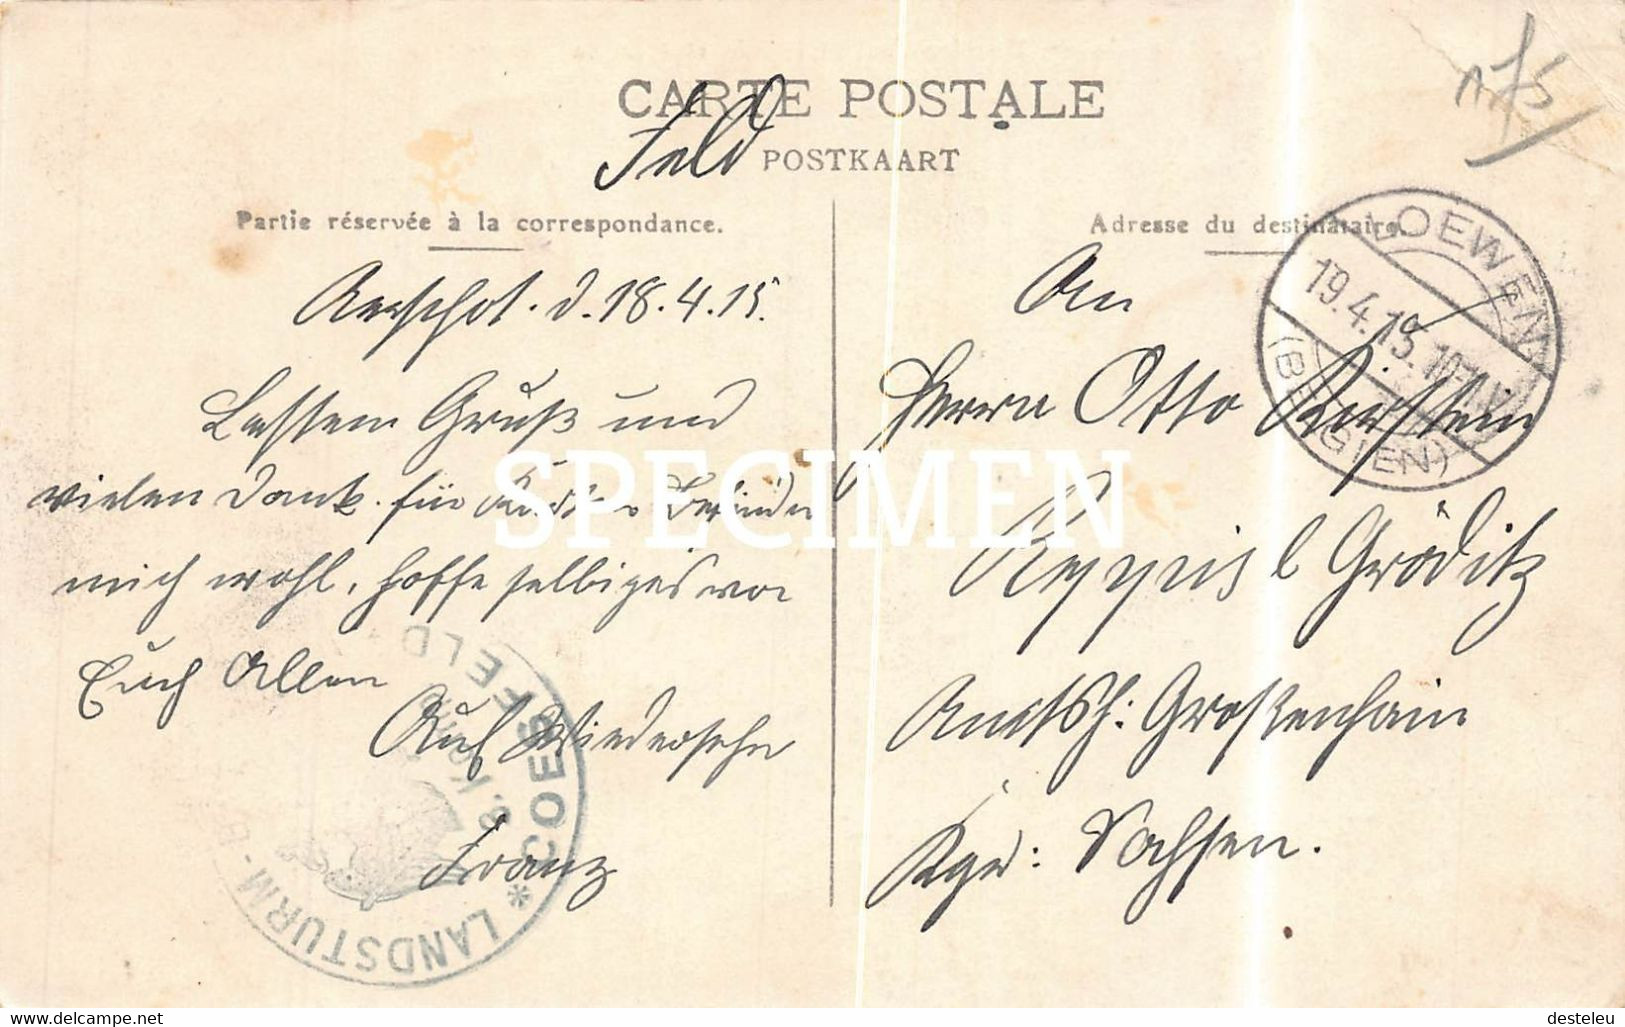 CARTE POSTALE
Feld POSTKAART
Partie réservée à la correspondance.
Aerschot. d. 18.4.15.
Besten Gruß und
vielen Dank. für Befinde
mich wohl, hoffe selbiges von
Euch Allen
Auf Wiedersehn
Franz
Adresse du destinataire.
An
Herrn Otto Kirstein
Reppis b Gröditz
Amtsh: Großenhain
Kgr: Sachsen.
LOEWEN
19.4.15. 10-11V
(BELGIEN)
LANDSTURM-B
* COESFELD
3. Komp
SPECIMEN
n75
www.delcampe.net
desteleu